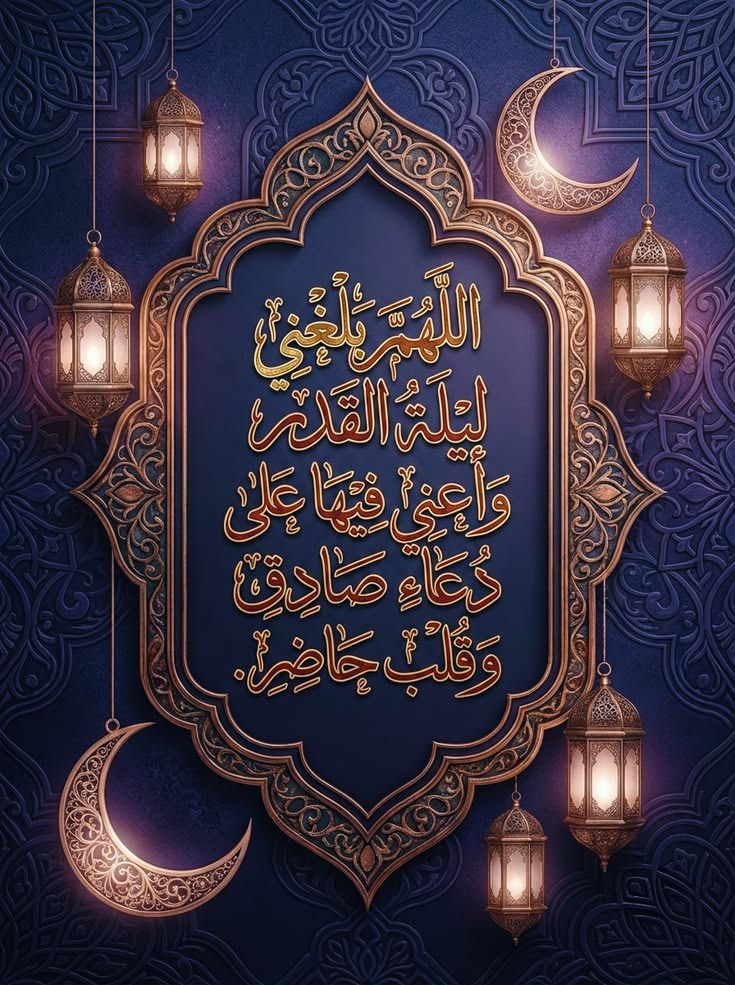 اللَّهُمَّ بَلِّغْنِي
لَيْلَةُ القَدَر
وَأَعِنِي فِيْهَا عَلى
دُعَاءِ صَادِقِ
وَقُلْب حَاضِرِ.